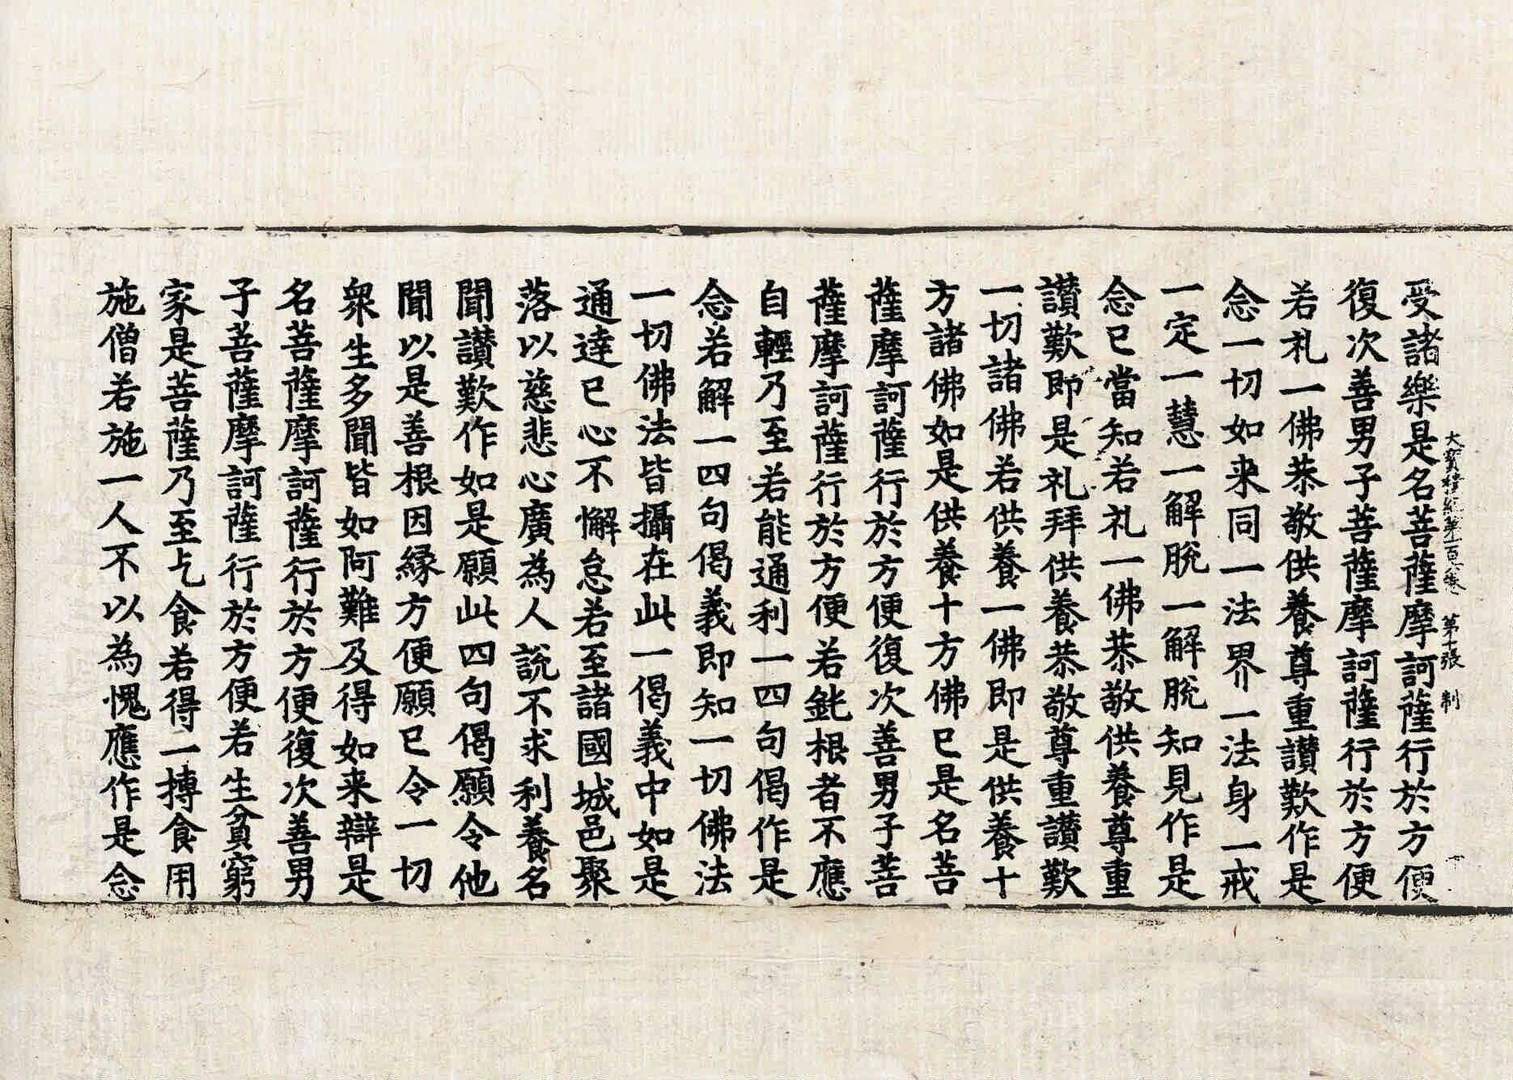 大寳積經第一百六卷 第十張 制
受諸樂是名菩薩摩訶薩行於方便
復次善男子菩薩摩訶薩行於方便
若礼一佛恭敬供養尊重讃歎作是
念一切如来同一法界一法身一戒
一定一慧一解脫一解脫知見作是
念已當知若礼一佛恭敬供養尊重
讃歎即是礼拜供養恭敬尊重讃歎
一切諸佛若供養一佛即是供養十
方諸佛如是供養十方佛已是名菩
薩摩訶薩行於方便復次善男子菩
薩摩訶薩行於方便若鈍根者不應
自輕乃至若能通利一四句偈作是
念若解一四句偈義即知一切佛法
一切佛法皆攝在此一偈義中如是
通達已心不懈怠若至諸國城邑聚
落以慈悲心廣為人說不求利養名
聞讃歎作如是願此四句偈願令他
聞以是善根因緣方便願已令一切
衆生多聞皆如阿難及得如来辯是
名菩薩摩訶薩行於方便復次善男
子菩薩摩訶薩行於方便若生貧窮
家是菩薩乃至乞食若得一摶食用
施僧若施一人不以為愧應作是念